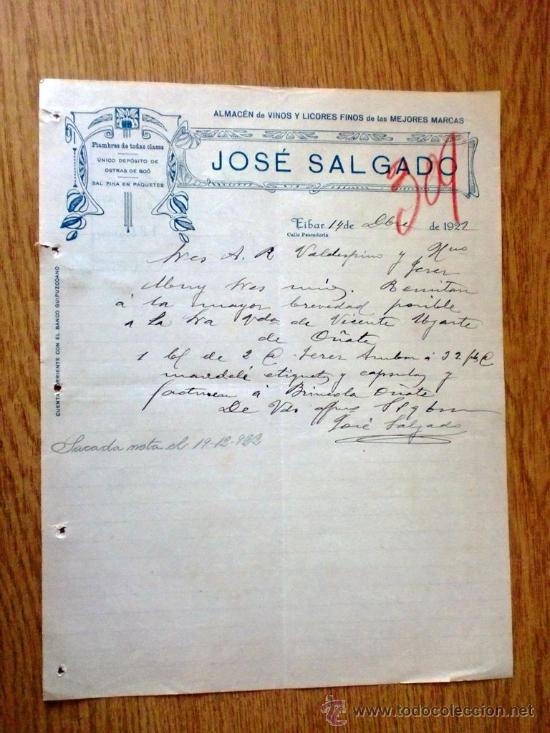 ALMACÉN de VINOS Y LICORES FINOS de las MEJORES MARCAS
Fiambres de todas clases
ÚNICO DEPÓSITO DE
OSTRAS DE BOÓ
SAL FINA EN PAQUETES
JOSÉ SALGADO
309
Eibar 14 de Dbre de 1922
Calle Pescadería
CUENTA CORRIENTE CON EL BANCO GUIPUZCOANO
Sres A. R Valdespino y Hno
Jerez
Muy Sres mios. Remitan
á la mayor brevedad posible
a la Sra Vda de Vicente Ugarte
de Oñate
1 de 2 C. Jerez á 32
etiquetas y capsulas y
á Oñate
De Vds affmo
José Salgado
Sacada nota el 19-12-922
www.todocoleccion.net